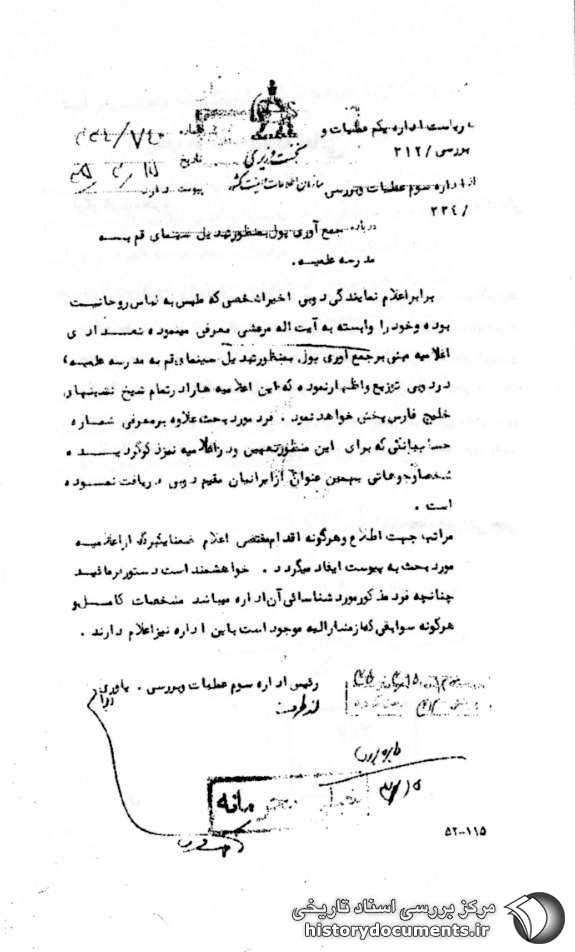 ریاست اداره یکم عملیات و
بررسی /۲۱۲
از اداره سوم عملیات و بررسی
/۲۲۴
نخست وزیری
سازمان اطلاعات و امنیت کشور
شماره
تاریخ
پیوست دارد
درباره جمع آوری پول بمنظور تبدیل سینمای قم بسه
مدرسه علمیه .
برابر اعلام نمایندگی دوبی اخیرا شخصی که ملبس به لباس روحانیت
بوده و خود را وابسته به آیت اله مرعشی معرفی مینموده تعدادی
اعلامیه مبنی بر جمع آوری پول بمنظور تبدیل سینمای قم به مدرسه علمیه ،
در دوبی توزیع و اظهار نموده که این اعلامیه ها را در تمام شیخ نشینهای
خلیج فارس پخش خواهد نمود . فرد مورد بحث علاوه بر معرفی شماره
حساب بانکی که برای این منظور تعیین و در اعلامیه نیز ذکر گردیده
شخصا وجوهاتی بهمین عنوان از ایرانیان مقیم دوبی دریافت نموده
است .
مراتب جهت اطلاع و هرگونه اقدام مقتضی اعلام ضمنا یک برگ از اعلامیه
مورد بحث به پیوست ایفاد میگردد . خواهشمند است دستور فرمائید
چنانچه فرد مذکور مورد شناسائی آن اداره میباشد مشخصات کامل و
هرگونه سوابقی که از مشارالیه موجود است باین اداره نیز اعلام دارند .
رئیس اداره سوم عملیات و بررسی . یاوری
خیلی محرمانه
۵۲-۱۱۵
مرکز بررسی اسناد تاریخی
historydocuments.ir